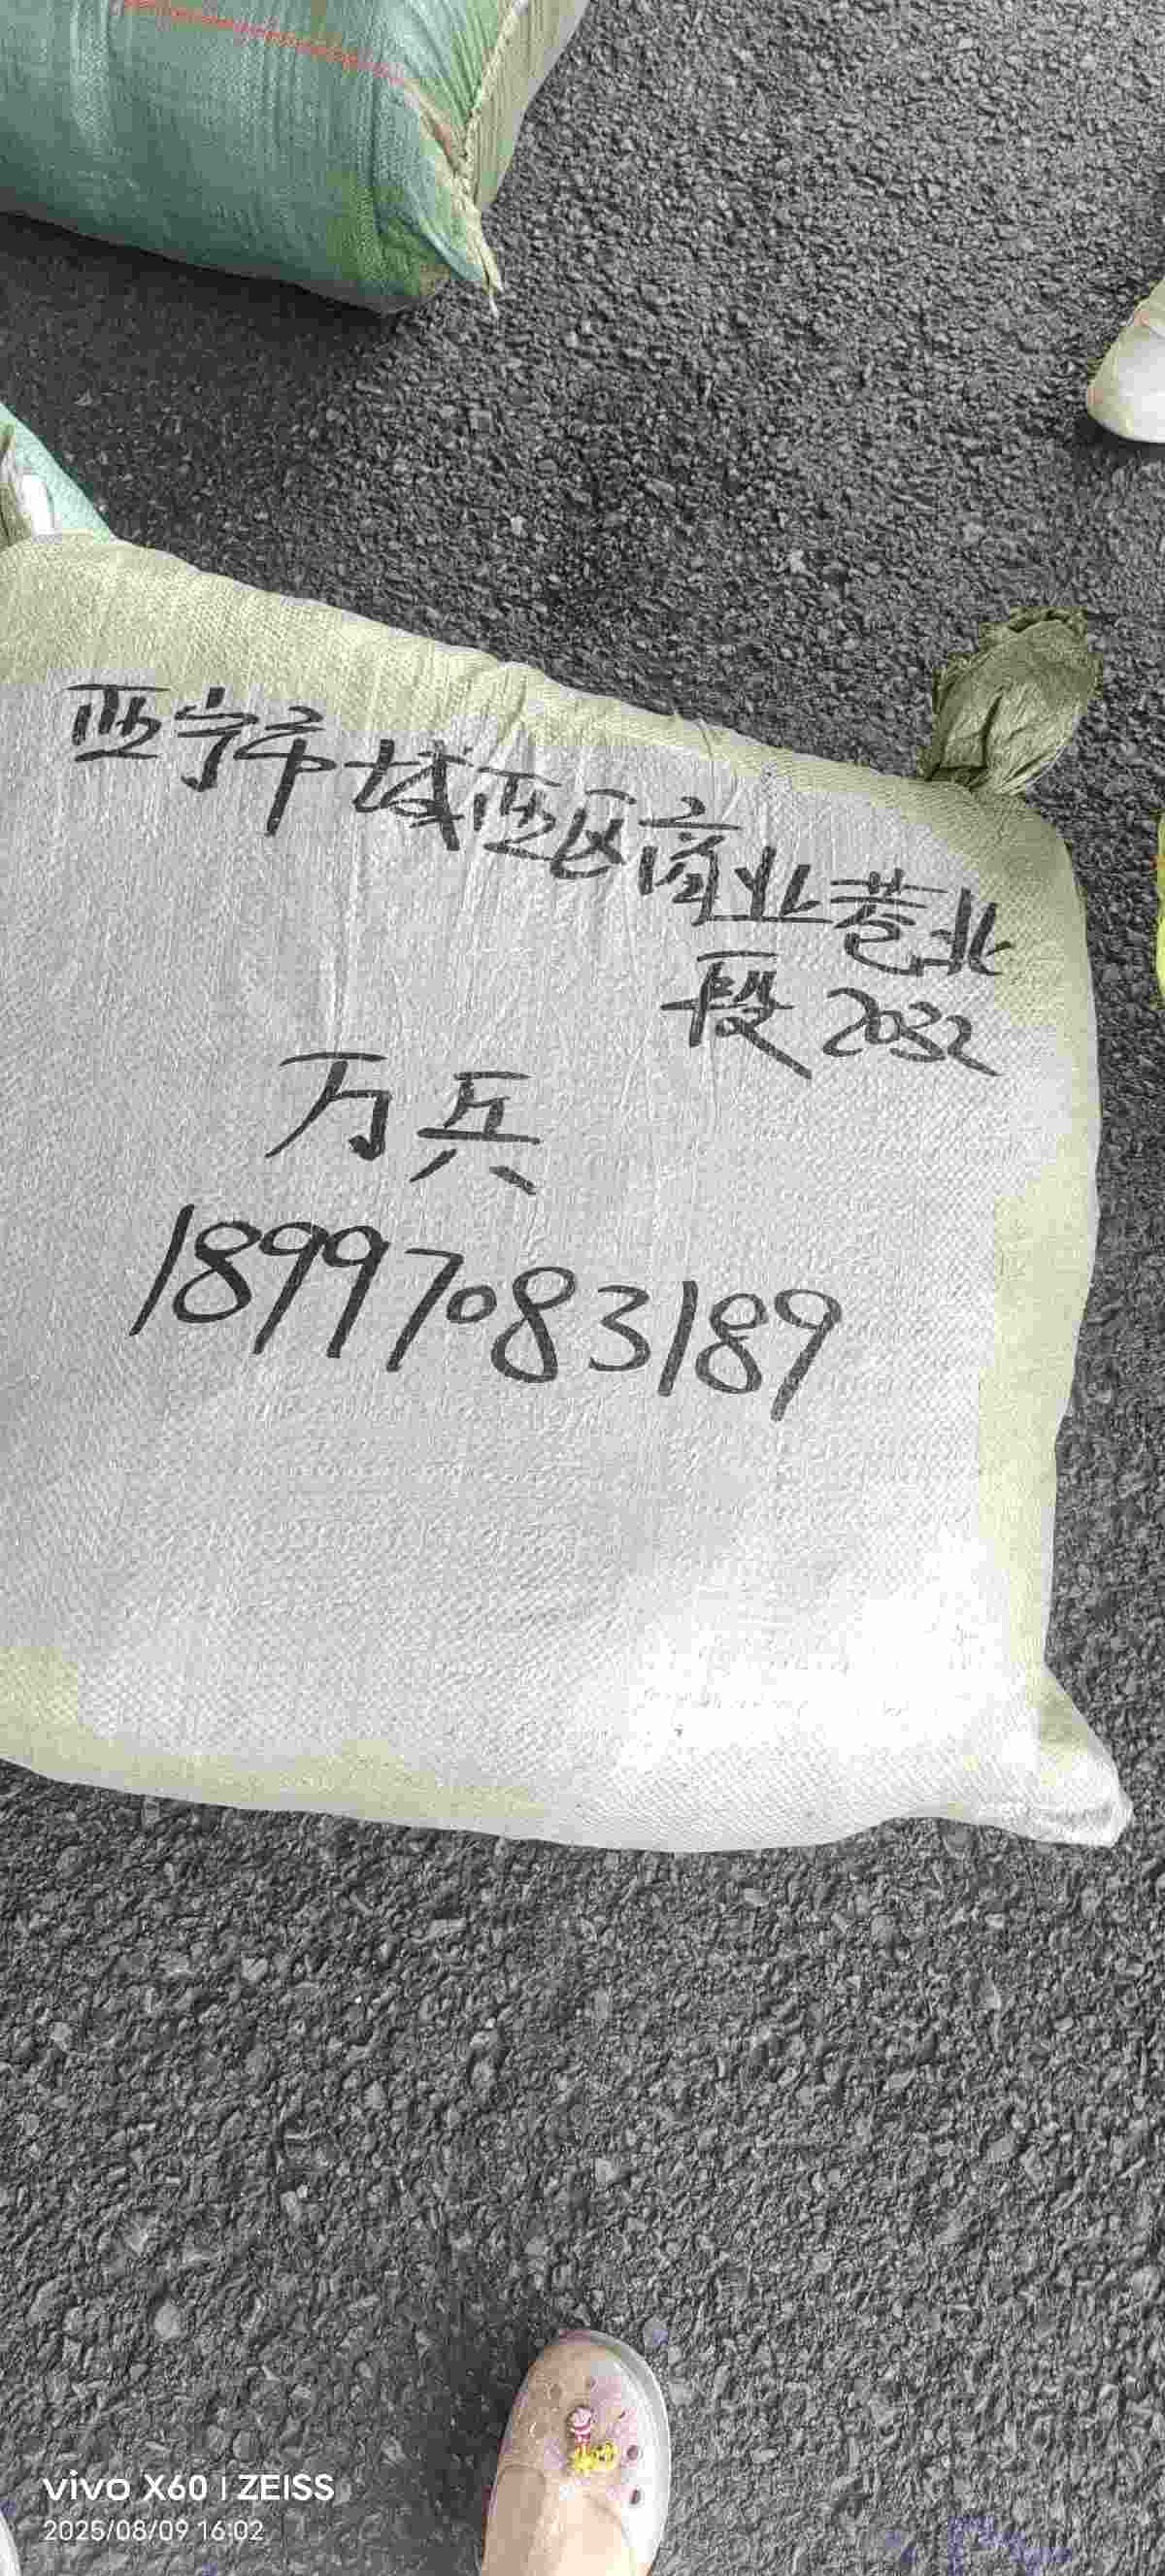 西宁市城西区商业巷北
段 2032
万兵
18997083189
vivo X60 | ZEISS
2025/08/09 16:02